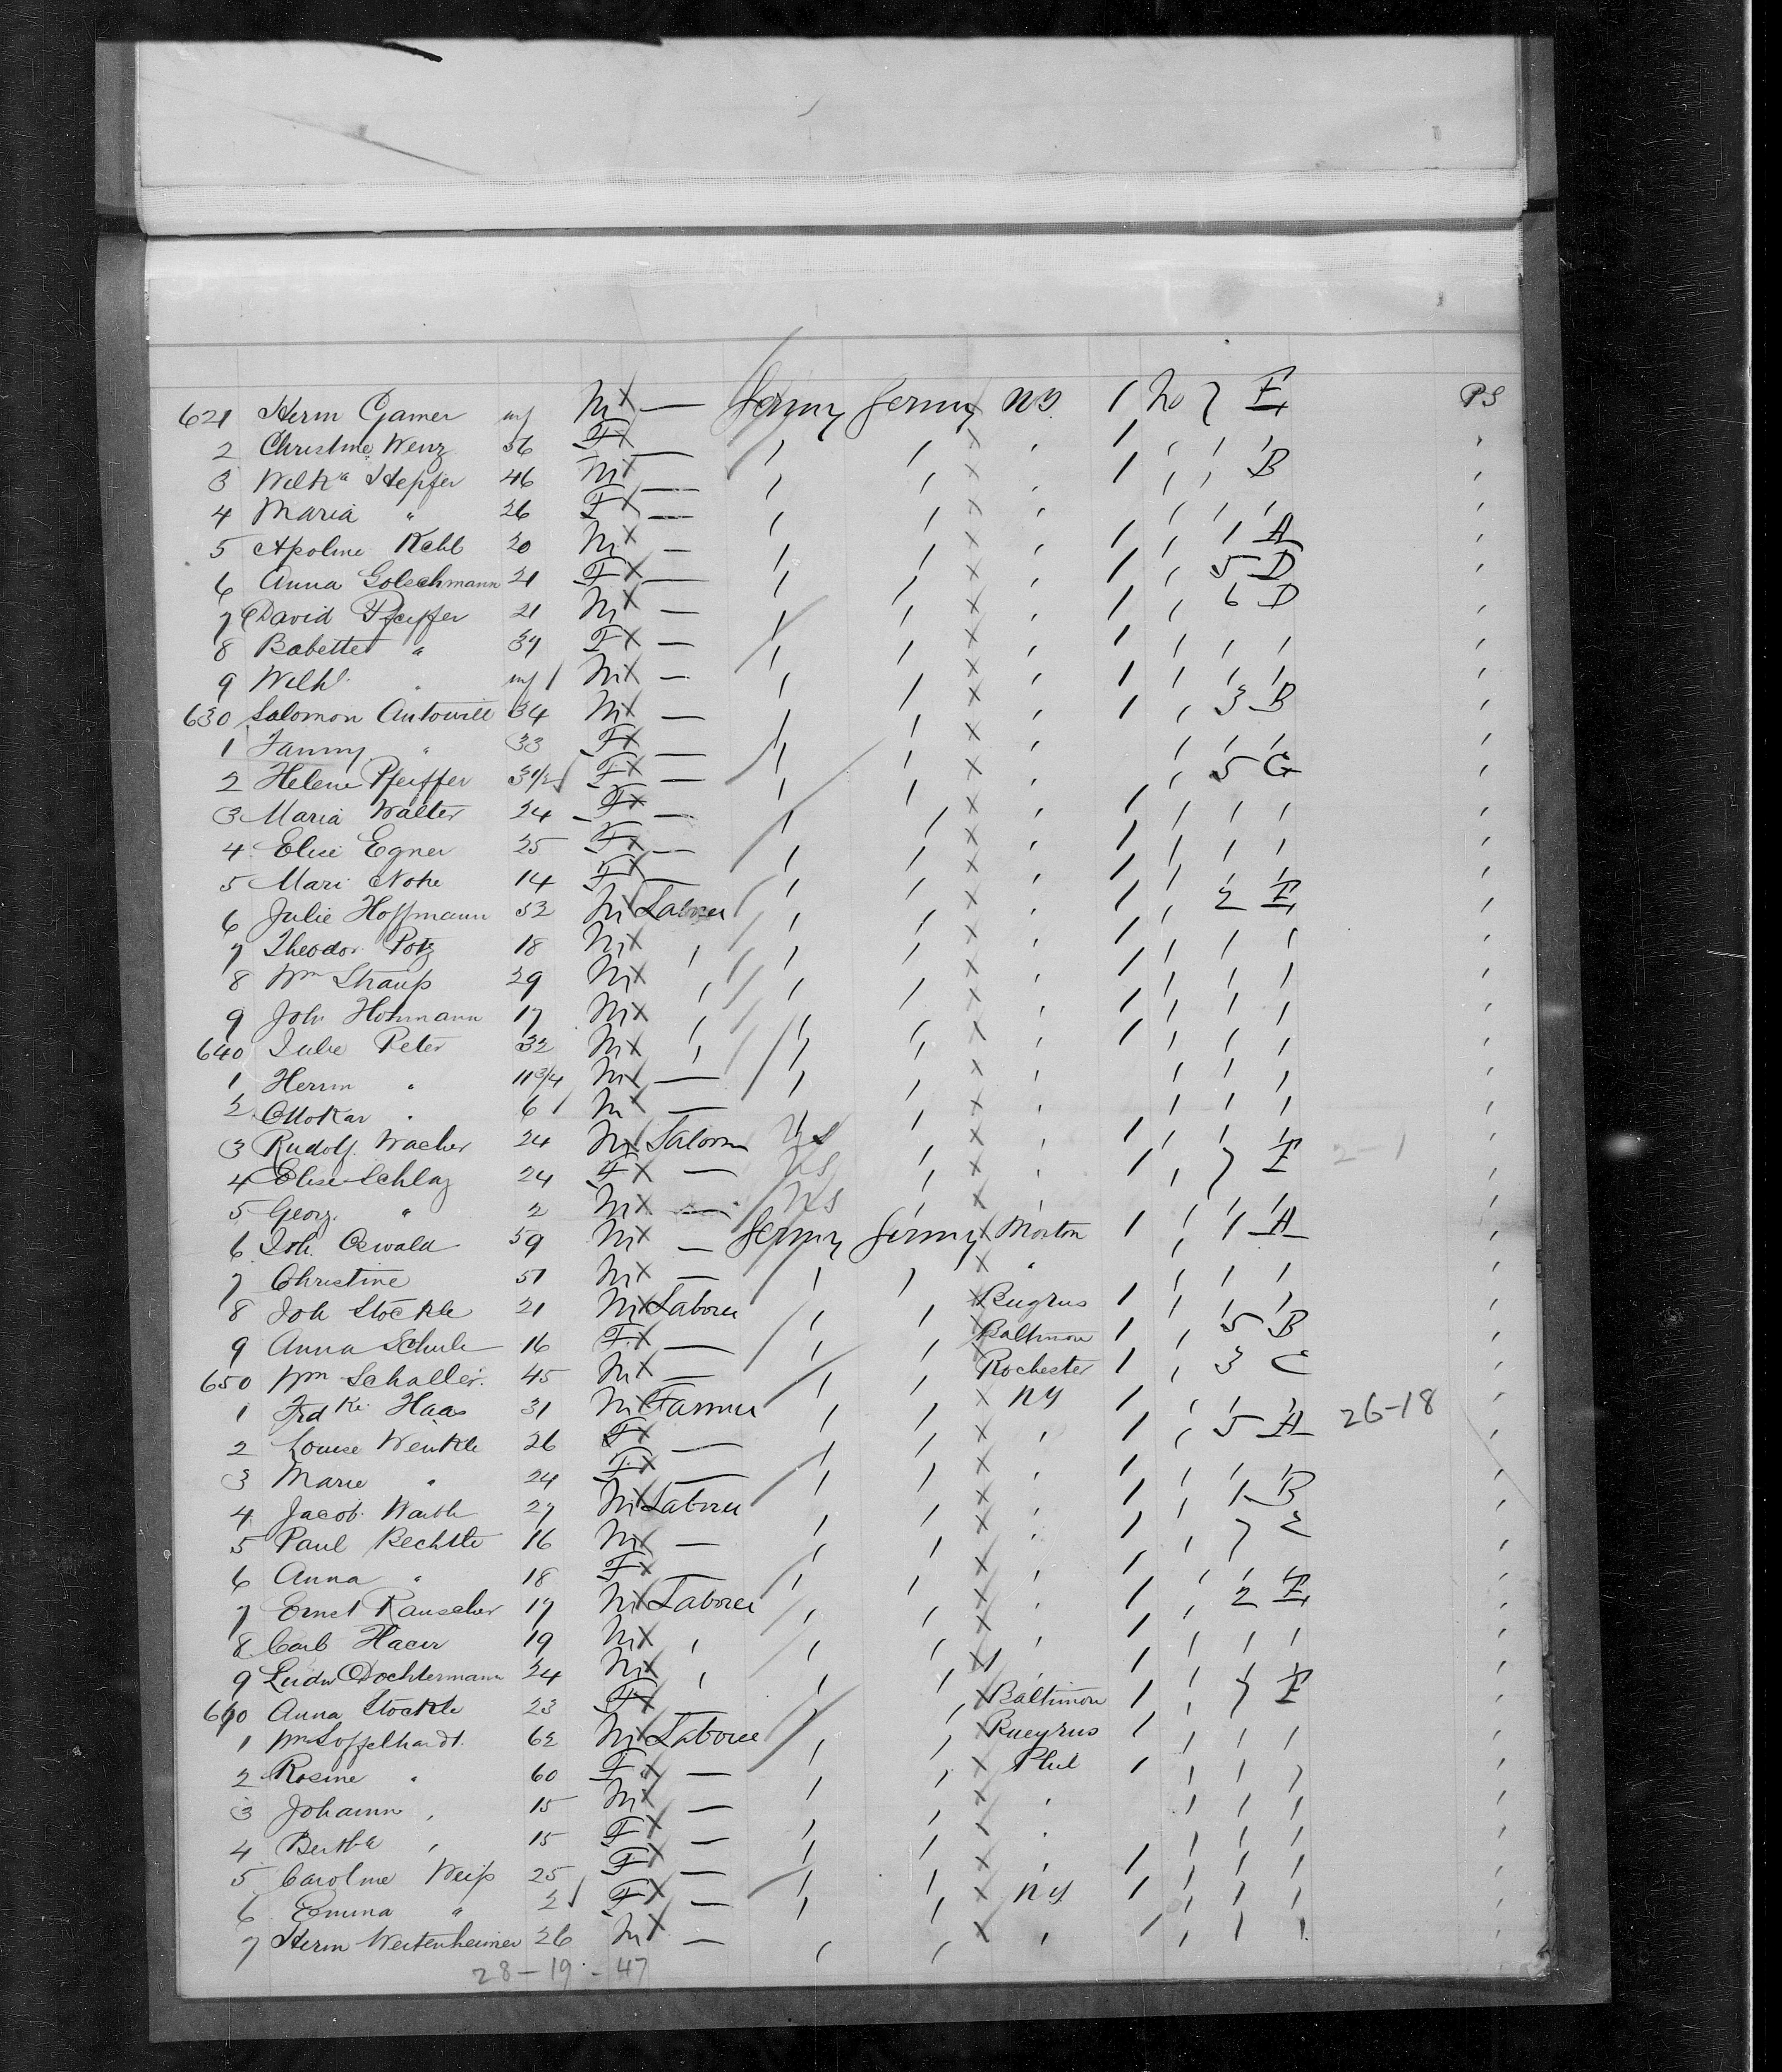 621 Herm Gamer inf M — Germy Germy NY 1 No 7 E PS
2 Christine Wenz 56 F — " " " 1 " " "
3 Wilh Hepfer 46 M — " " " 1 " " B
4 Maria " 26 F — " " " " " "
5 Apoline Kehl 20 M — " " " 1 " 1 A
6 Anna Golschmann 21 F — " " " 1 " 5 D
7 David Pfeiffer 21 M — " " " 1 " 6 D
8 Babette " 37 F — " " " 1 " " "
9 Wilhl " inf M — " " " 1 " " "
630 Salomon 34 M — " " " 1 " 3 B
1 Fanny " 33 F — " " " " " "
2 Helene Pfeiffer 3 1/2 F — " " " " 5 G
3 Maria Walter 24 F — " " " 1 " " "
4 Elise Egner 25 F — " " " 1 " " "
5 Mari Nohe 14 F — " " " 1 " " "
6 Julie Hoffmann 52 M Laborer " " " 1 " 2 E
7 Theodor Potz 18 M " " " " 1 " " "
8 Wm Strauß 29 M " " " " 1 " " "
9 Joh Hohmann 17 M " " " " 1 " " "
640 Julie Peter 32 M " " " " 1 " " "
1 Herm " 11 3/4 M — " " " " " "
2 Ottokar " 6 M — " " " " " "
3 Rudolf Wacker 24 M Laborer US " " 1 " " "
4 Elise Schlaz 24 F — US " " 1 " 7 E 2-1
5 Georg " 2 M — US " " " " "
6 Joh. Oswald 59 M — Germy Germy Morton 1 " 1 A
7 Christine 51 M — " " " " " "
8 Joh Stöckle 21 M Laborer " " Bugrus 1 " " "
9 Anna Schule 16 F — " " Baltimore 1 " 5 B
650 Wm Schaller 45 M — " " Rochester 1 " 3 C
1 Frdke Haas 31 M Farmer " " NY 1 " " "
2 Louise Wenkle 26 F — " " " 1 " 5 A 26-18
3 Marie " 24 F — " " " 1 " " "
4 Jacob 27 M Laborer " " " 1 " 1 B
5 Paul Bechtle 16 M — " " " 1 " 7
6 Anna " 18 F — " " " 1 " " "
7 Ernst Rauscher 17 M Laborer " " " 1 " 2 E
8 Carl 19 M " " " " 1 " " "
9 Ludw Dochtermann 24 M " " " " 1 " " "
660 Anna Stöckle 23 F — " " Baltimore 1 " 7 E
1 Wm Loffelhardt 62 M Laborer " " Bucyrus 1 " " "
2 Rosine " 60 F — " " Phil 1 " " "
3 Johann " 15 M — " " " " " "
4 Bertha " 15 F — " " " " " "
5 Caroline Weiß 25 F — " " " 1 " " "
6 Emma " 2 F — " " NY 1 " " "
7 Herm Weitenheimer 26 M — " " " 1 " " "
28-19-47